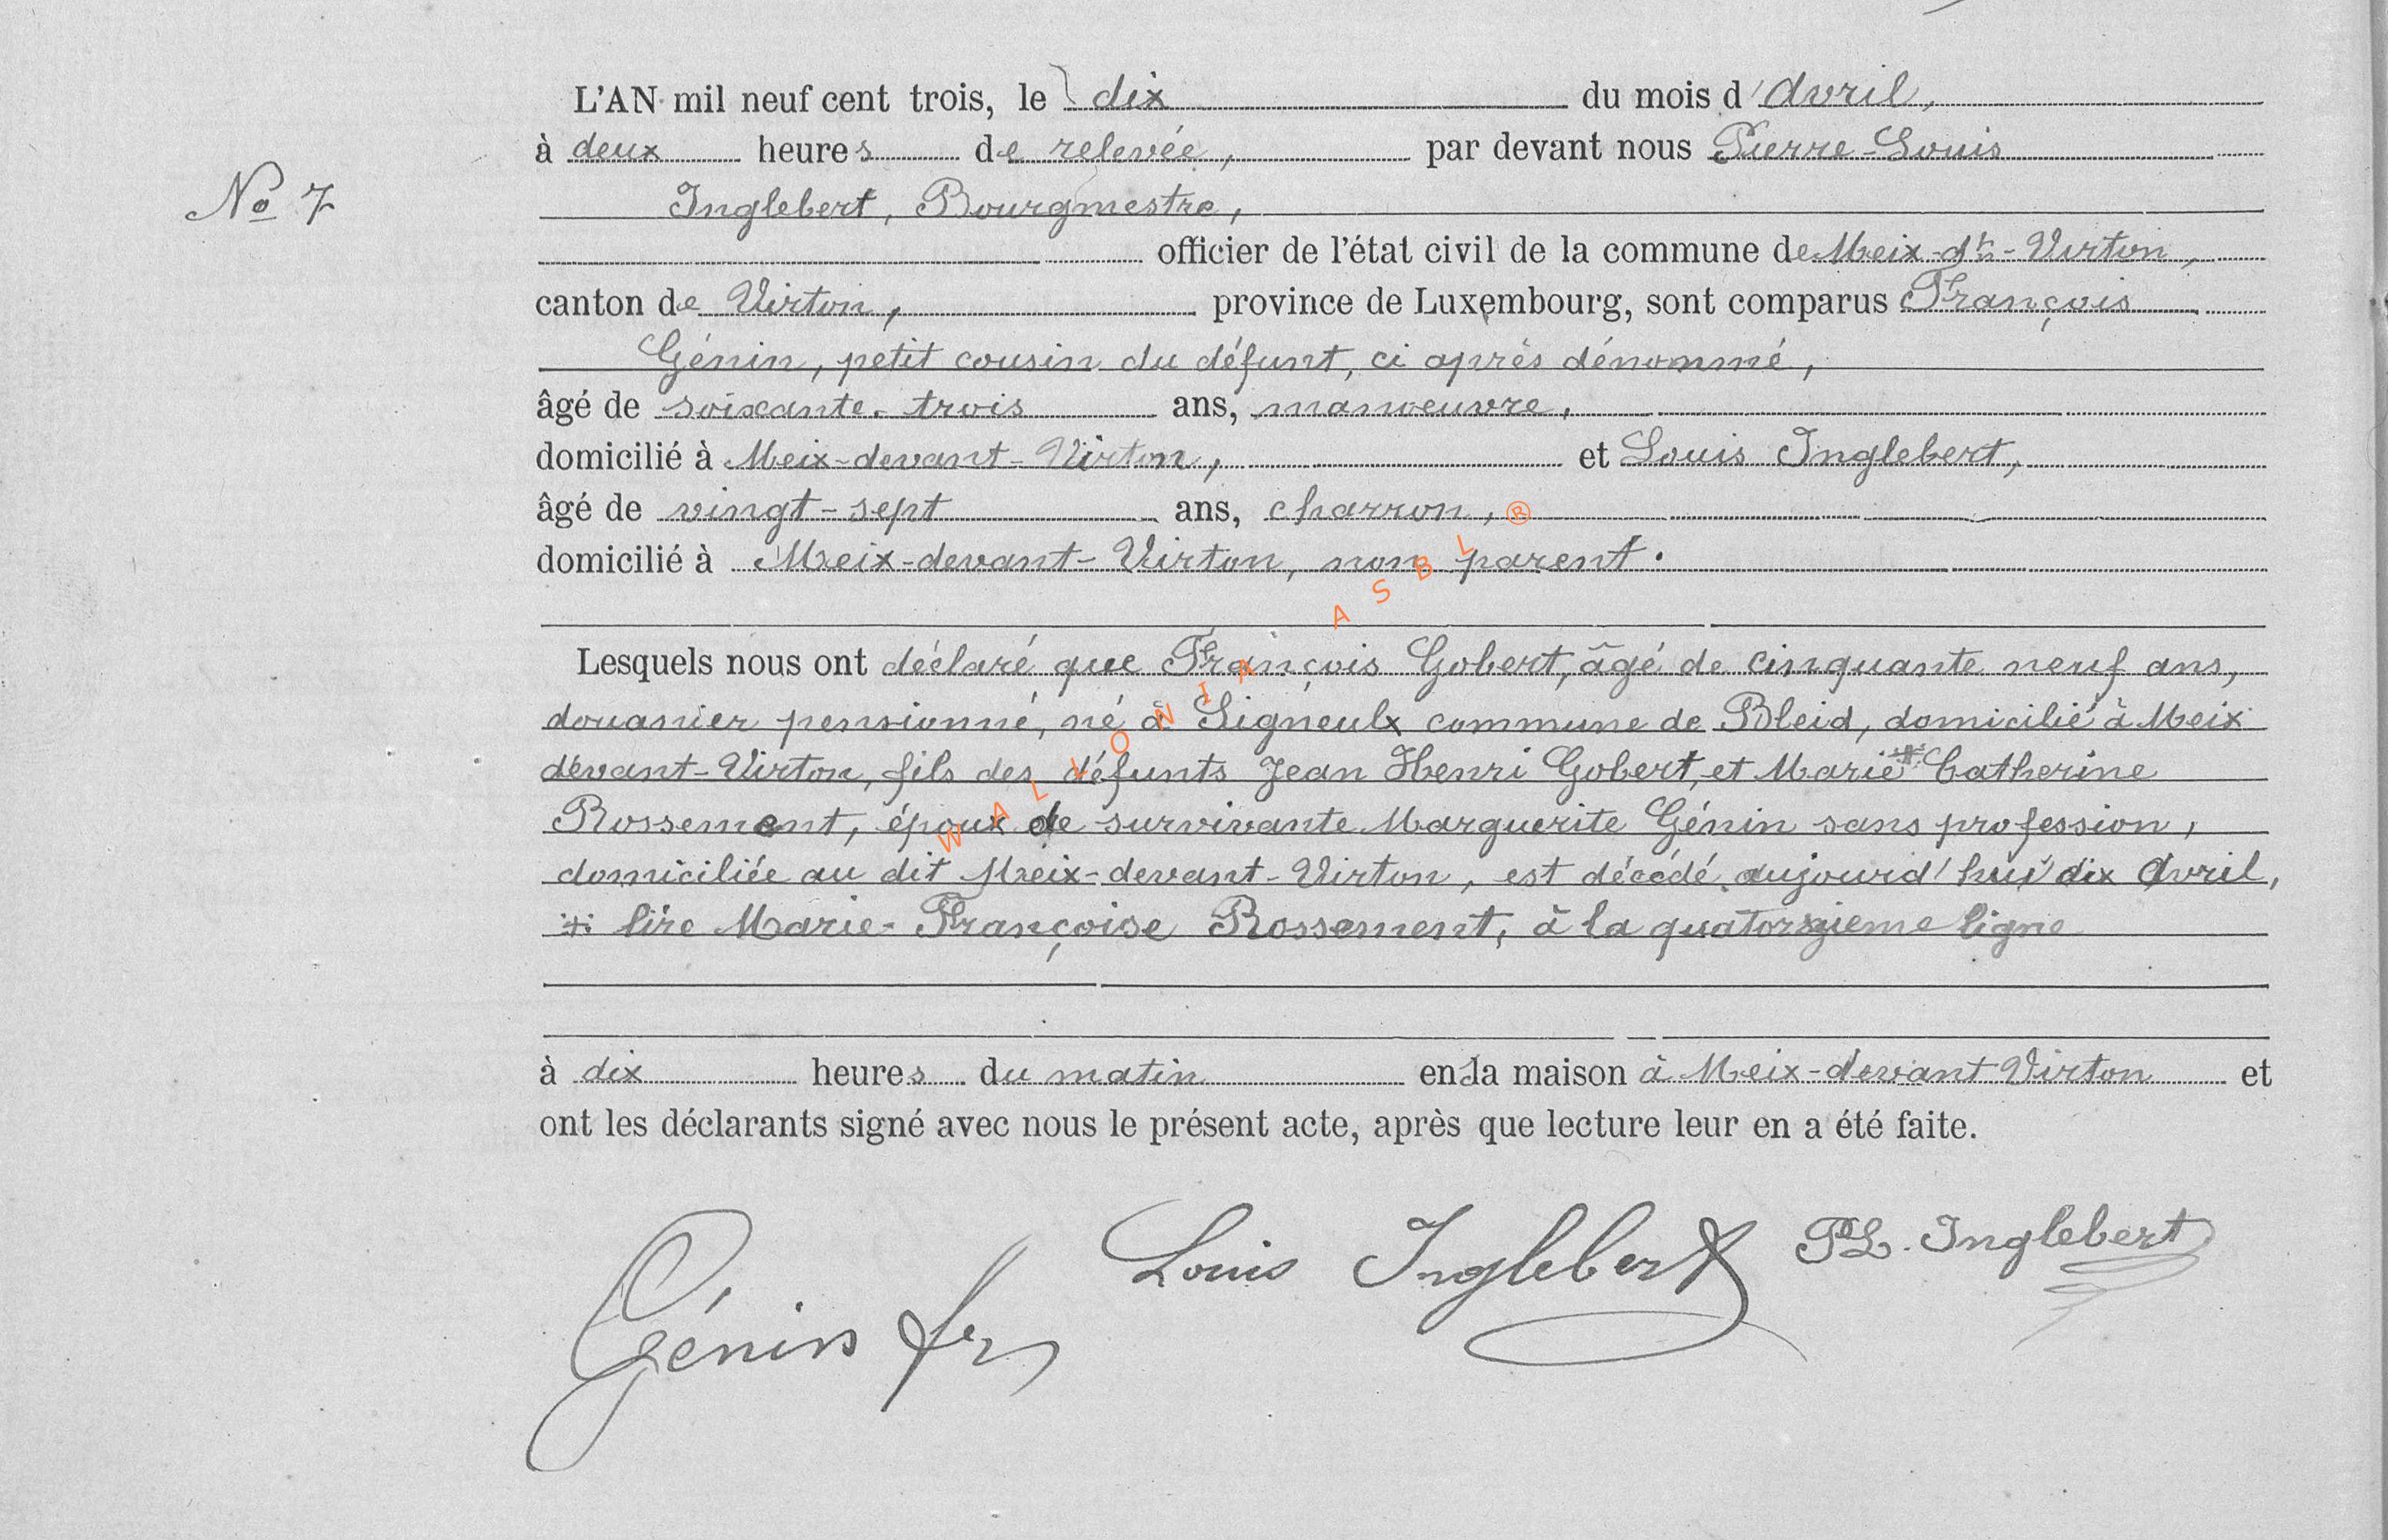 L'AN mil neuf cent trois, le dix du mois d'Avril,
à deux heures de relevée, par devant nous Pierre-Louis
No 7
Inglebert, Bourgmestre,
officier de l'état civil de la commune de Meix-dt-Virton,
canton de Virton, province de Luxembourg, sont comparus François
Génin, petit cousin du défunt, ci après dénommé,
âgé de soixante-trois ans, manoeuvre,
domicilié à Meix-devant-Virton, et Louis Inglebert,
âgé de vingt-sept ans, charron,
domicilié à Meix-devant-Virton, non parent.
Lesquels nous ont déclaré que François Gobert, âgé de cinquante neuf ans,
douanier pensionné, né à Signeulx commune de Bleid, domicilié à Meix
devant-Virton, fils des défunts Jean Henri Gobert, et Marie * Catherine
Rossement, époux de survivante Marguerite Génin sans profession,
domiciliée au dit Meix-devant-Virton, est décédé aujourd'hui dix Avril,
* lire Marie-Françoise Rossement, à la quatorzième ligne
à dix heures du matin en la maison à Meix-devant Virton et
ont les déclarants signé avec nous le présent acte, après que lecture leur en a été faite.
Génin fr
Louis Inglebert
PL. Inglebert
WALLONIA ASBL ®